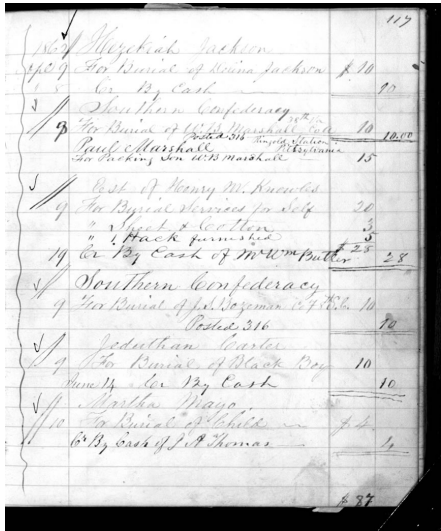 117
1862 Hezekiah Jackson
Apl 9 For Burial of Jackson $ 10
Cr By Cash 10
Southern Confederacy
8 For Burial of W. B. Marshall 10 10.00
Posted 316 Ringold Station
Paul Marshall Pittsylvania
For Packing Son W. B. Marshall 15
Est of Henry M. Knowles
9 For Burial Services for Self 20
" Sheet & Cotton 3
" 1 Hack furnished 5
$ 28
19 Cr By Cash of Mr Wm Butler 28
Southern Confederacy
9 For Burial of J. S. Bozeman 10
Posted 316 10
Jeduthan Carter
9 For Burial of Black Boy 10
June 14 Cr By Cash 10
Martha Mayo
10 For Burial of Child $ 4
Cr By Cash of J. A Thomas 4
$ 87